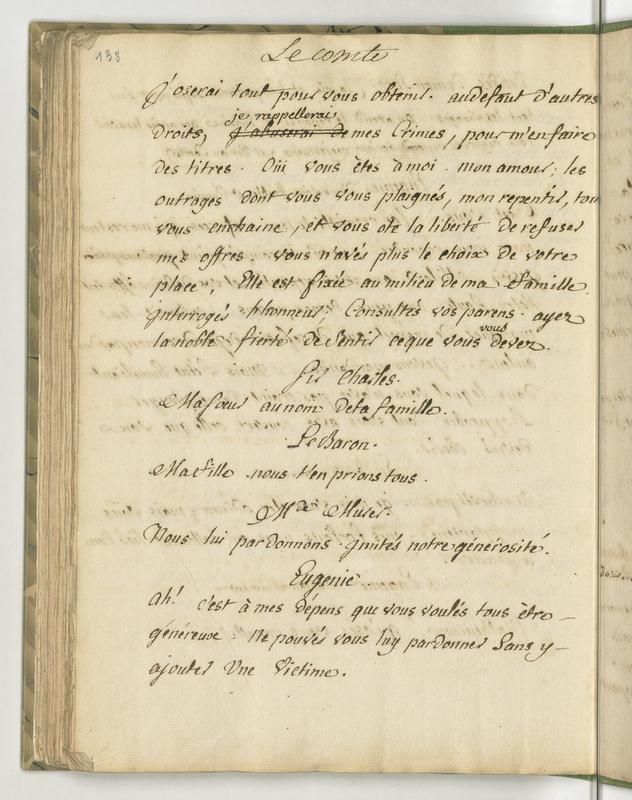 138
Le comte
J'oserai tout pour vous obtenir. audefaut d'autres
je rappellerai
Droits, J'abuserai de mes Crimes, pour m'en faire
des titres. Oüi vous êtes à moi. mon amour; les
outrages dont vous vous plaignés, mon repentir, tou
vous enchaine, et vous ote la liberté de refuser
mes offres. vous n'avés plus le choix de votre
place, Elle est fixée au milieu de ma famille.
interrogés l'honneur; Consultés vos parens. ayez
vous
la noble fierté de Sentir ceque vous devez.
Sir Charles.
Ma soeur au nom de ta famille.
Le Baron.
Ma fille nous t'en prions tous.
Mde Murer.
Nous lui pardonnons. imités notre générosité.
Eugenie.
ah! c'est à mes Dépens que vous voulés tous être
généreux. Ne pouvés vous luy pardonner Sans y
ajouter Une Victime.